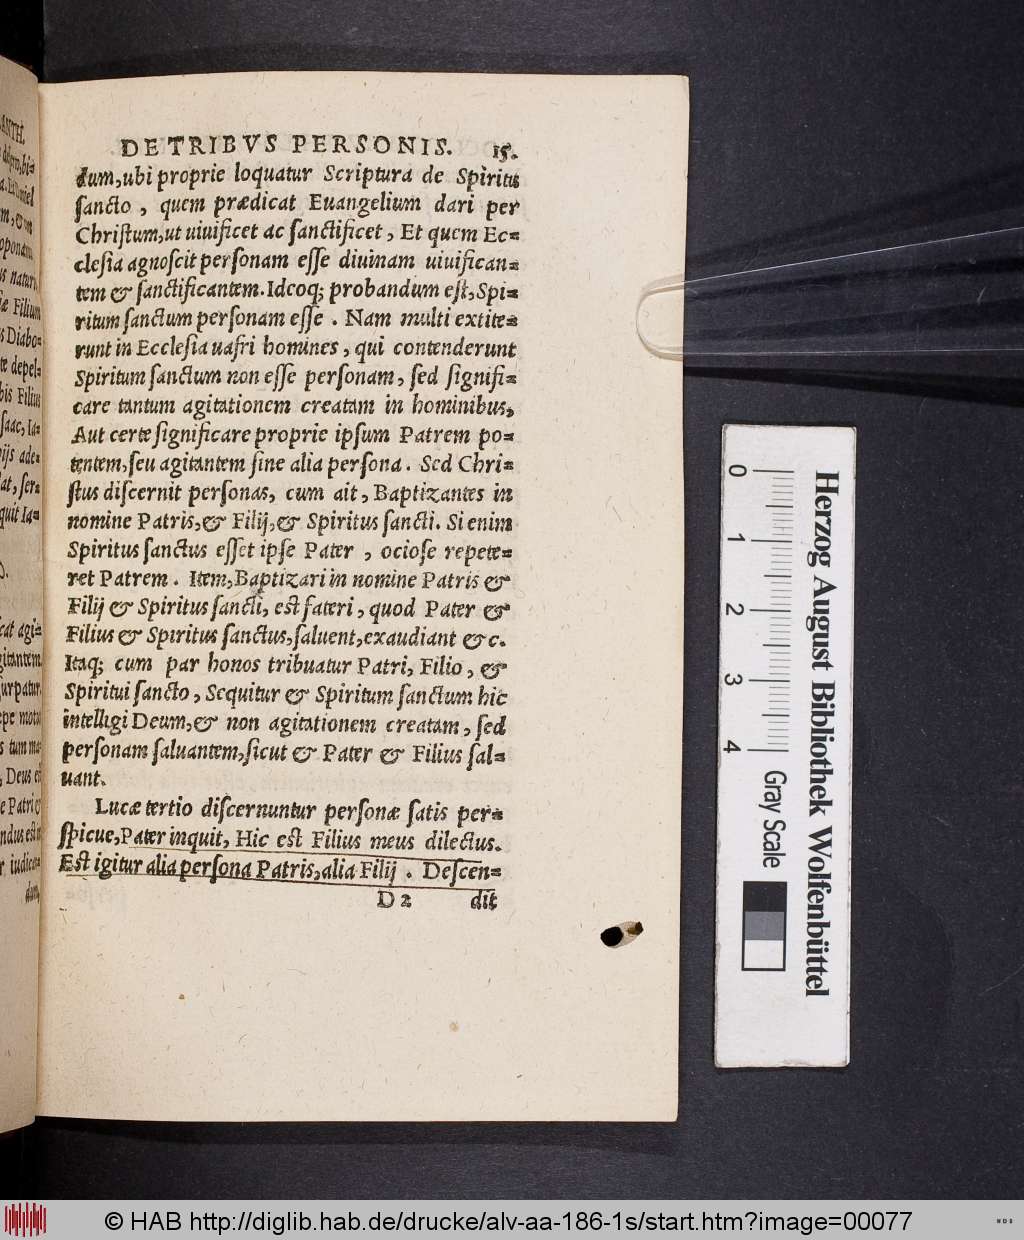 DE TRIBVS PERSONIS. 15.
dum, ubi proprie loquatur Scriptura de Spiritu
ſancto, quem prædicat Euangelium dari per
Chriſtum, ut uiuificet ac ſanctificet, Et quem Ec=
cleſia agnoſcit perſonam eſſe diuinam uiuifican=
tem & ſanctificantem. Idcoq; probandum eſt, Spi=
ritum ſanctum perſonam eſſe. Nam multi extite=
runt in Eccleſia uafri homines, qui contenderunt
Spiritum ſanctum non eſſe perſonam, ſed ſignifi=
care tantum agitationem creatam in hominibus,
Aut certe ſignificare proprie ipſum Patrem po=
tentem, ſeu agitantem ſine alia perſona. Sed Chri=
ſtus diſcernit perſonas, cum ait, Baptizantes in
nomine Patris, & Filij, & Spiritus ſancti. Si enim
Spiritus ſanctus eſſet ipſe Pater, ocioſe repete=
ret Patrem. Item, Baptizari in nomine Patris &
Filij & Spiritus ſancti, est fateri, quod Pater &
Filius & Spiritus ſanctus, ſaluent, exaudiant &c.
Itaq; cum par honos tribuatur Patri, Filio, &
Spiritui ſancto, Sequitur & Spiritum ſanctum hic
intelligi Deum, & non agitationem creatam, ſed
perſonam ſaluantem, ſicut & Pater & Filius ſal=
uant.
Lucæ tertio diſcernuntur perſonæ ſatis per=
ſpicue, Pater inquit, Hic est Filius meus dilectus.
Est igitur alia perſona Patris, alia Filij. Deſcen=
D 2 dit
Herzog August Bibliothek Wolfenbüttel
0 1 2 3 4 Gray Scale
© HAB http://diglib.hab.de/drucke/alv-aa-186-1s/start.htm?image=00077